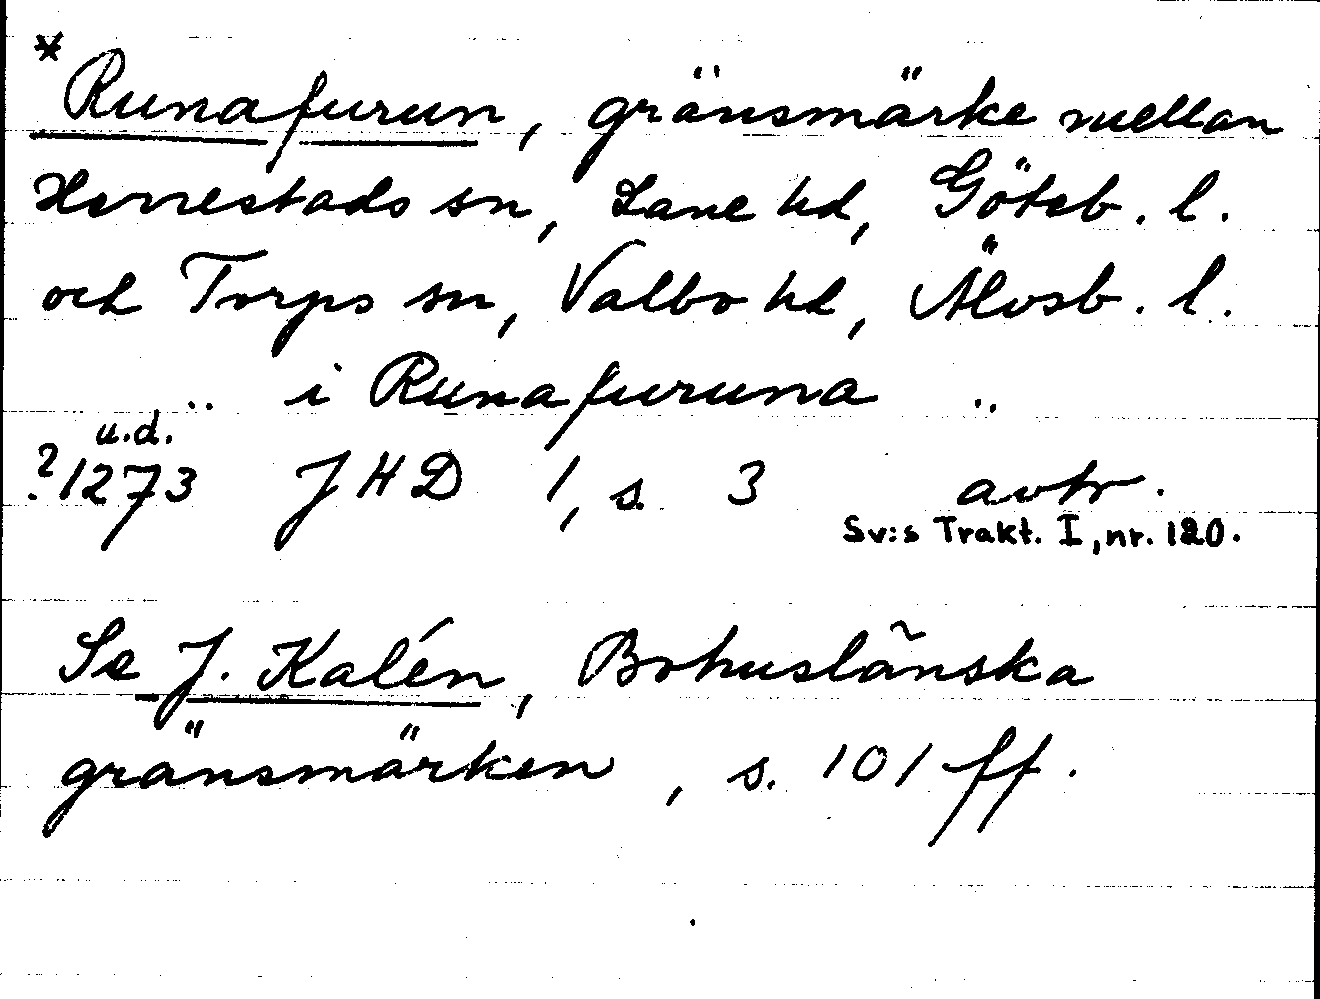 * Runafurun, gränsmärke mellan
Herrestads sn, Lane hd, Göteb. l.
och Torps sn, Valbo hd, Älvsb. l.
.. i Runafuruna ..
u.d.
?1273 JHD 1, s. 3 avtr.
Sv:s Trakt. I, nr. 120.
Se J. Kalén, Bohuslänska
gränsmärken, s. 101 ff.